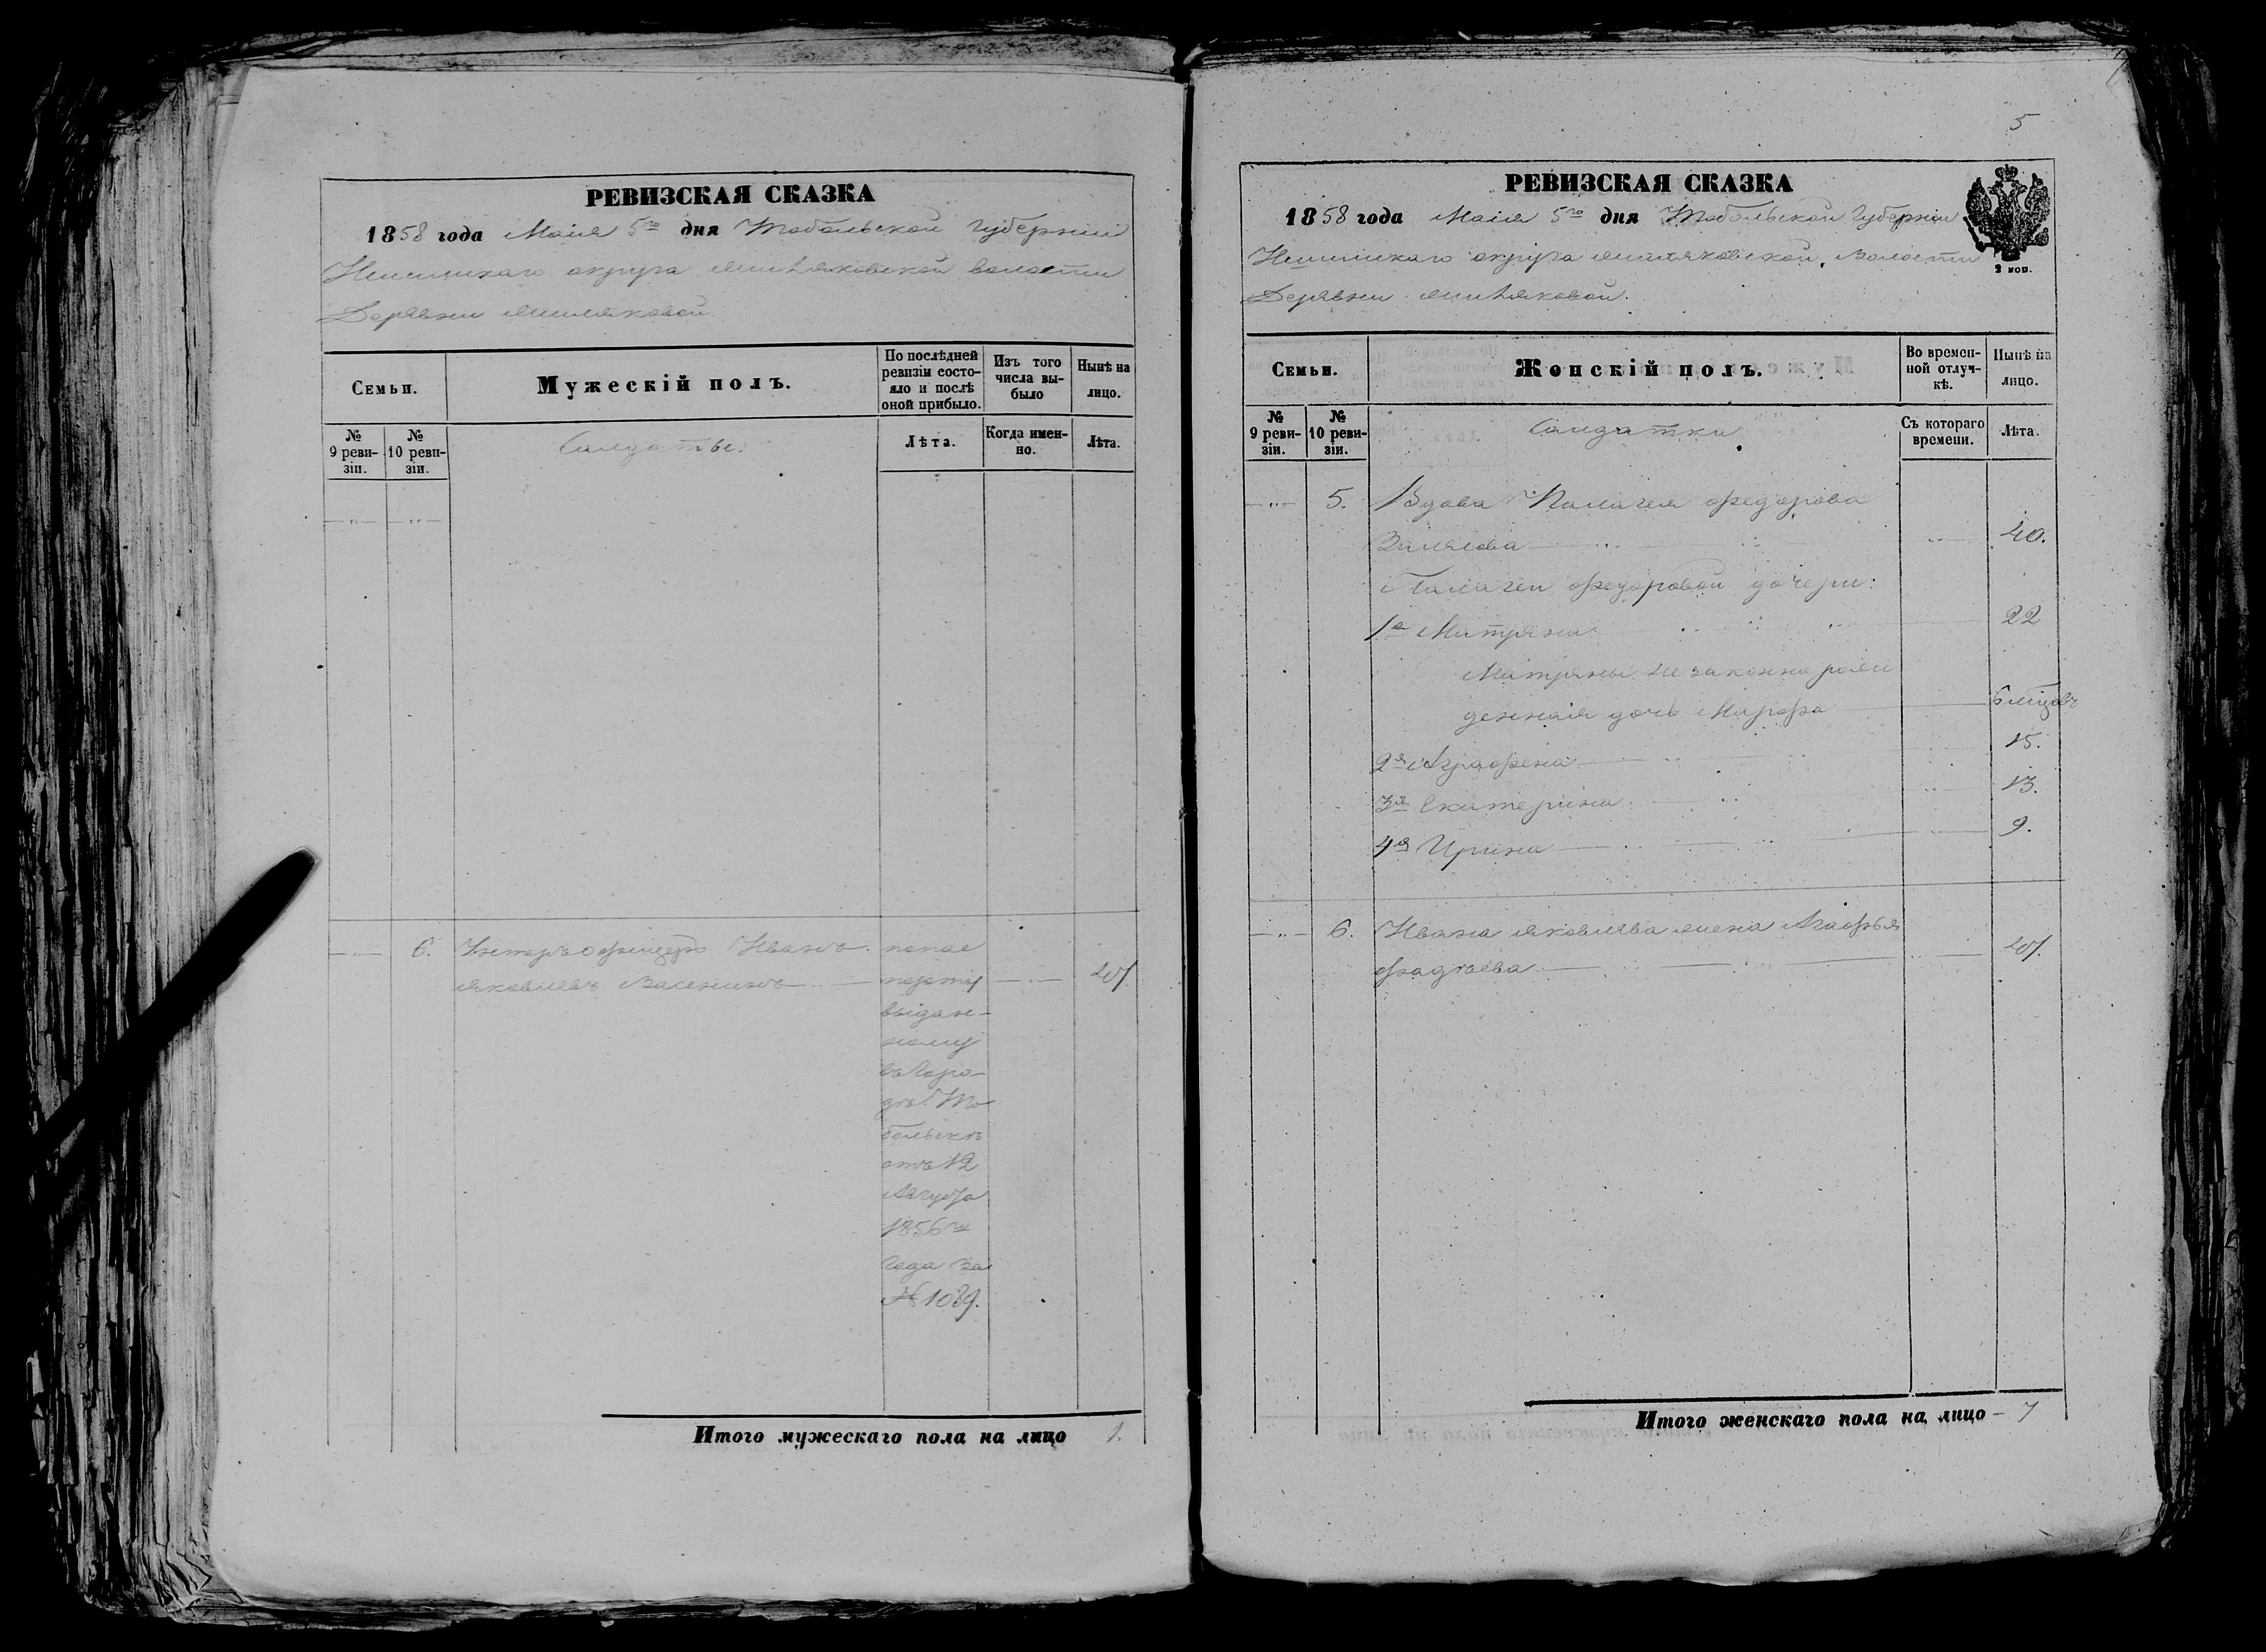 РЕВИЗСКАЯ СКАЗКА
1858 года Маія 5го дня Тобольской Губерніи
Ишимскаго округа Жиляковской волости
Деревни Жиляковой
Семьи.
Мужескій полъ.
По послѣдней ревизіи состояло и послѣ оной прибыло.
Изъ того числа выбыло
Нынѣ на лицо.
№ 9 ревизіи.
№ 10 ревизіи.
Солдаты.
Лѣта.
Когда именно.
Лѣта.
6. Унтеръ офицеръ Иванъ
Яковлевъ
попас
порту
выдан-
ному
въ Горо-
дѣ То
больскѣ
отъ 12
Августа
1856го
года за
№ 1089.
Итого мужескаго пола на лицо 1.
5
РЕВИЗСКАЯ СКАЗКА
1858 года Маія 5го дня Тобольской Губерніи
Ишимскаго округа Жиляковской Волости
Деревни Жиляковой.
2 коп.
Семьи.
Женскій полъ.
Во временной отлучкѣ.
Нынѣ на лицо.
№ 9 ревизіи.
№ 10 ревизіи.
Солдатки
Съ котораго времени.
Лѣта.
5. Вдова Палагея Федорова
40.
Палагеи Федоровой дочери:
1я Матряна 22
Матряны не законно рож
денная дочь Марфа 6 мѣцовъ
2я Аграфена 15.
3я Екатерина 13.
4я Ирина 9.
6. Ивана Яковлева жена Агафья
Фадѣева
Итого женскаго пола на лицо - 7